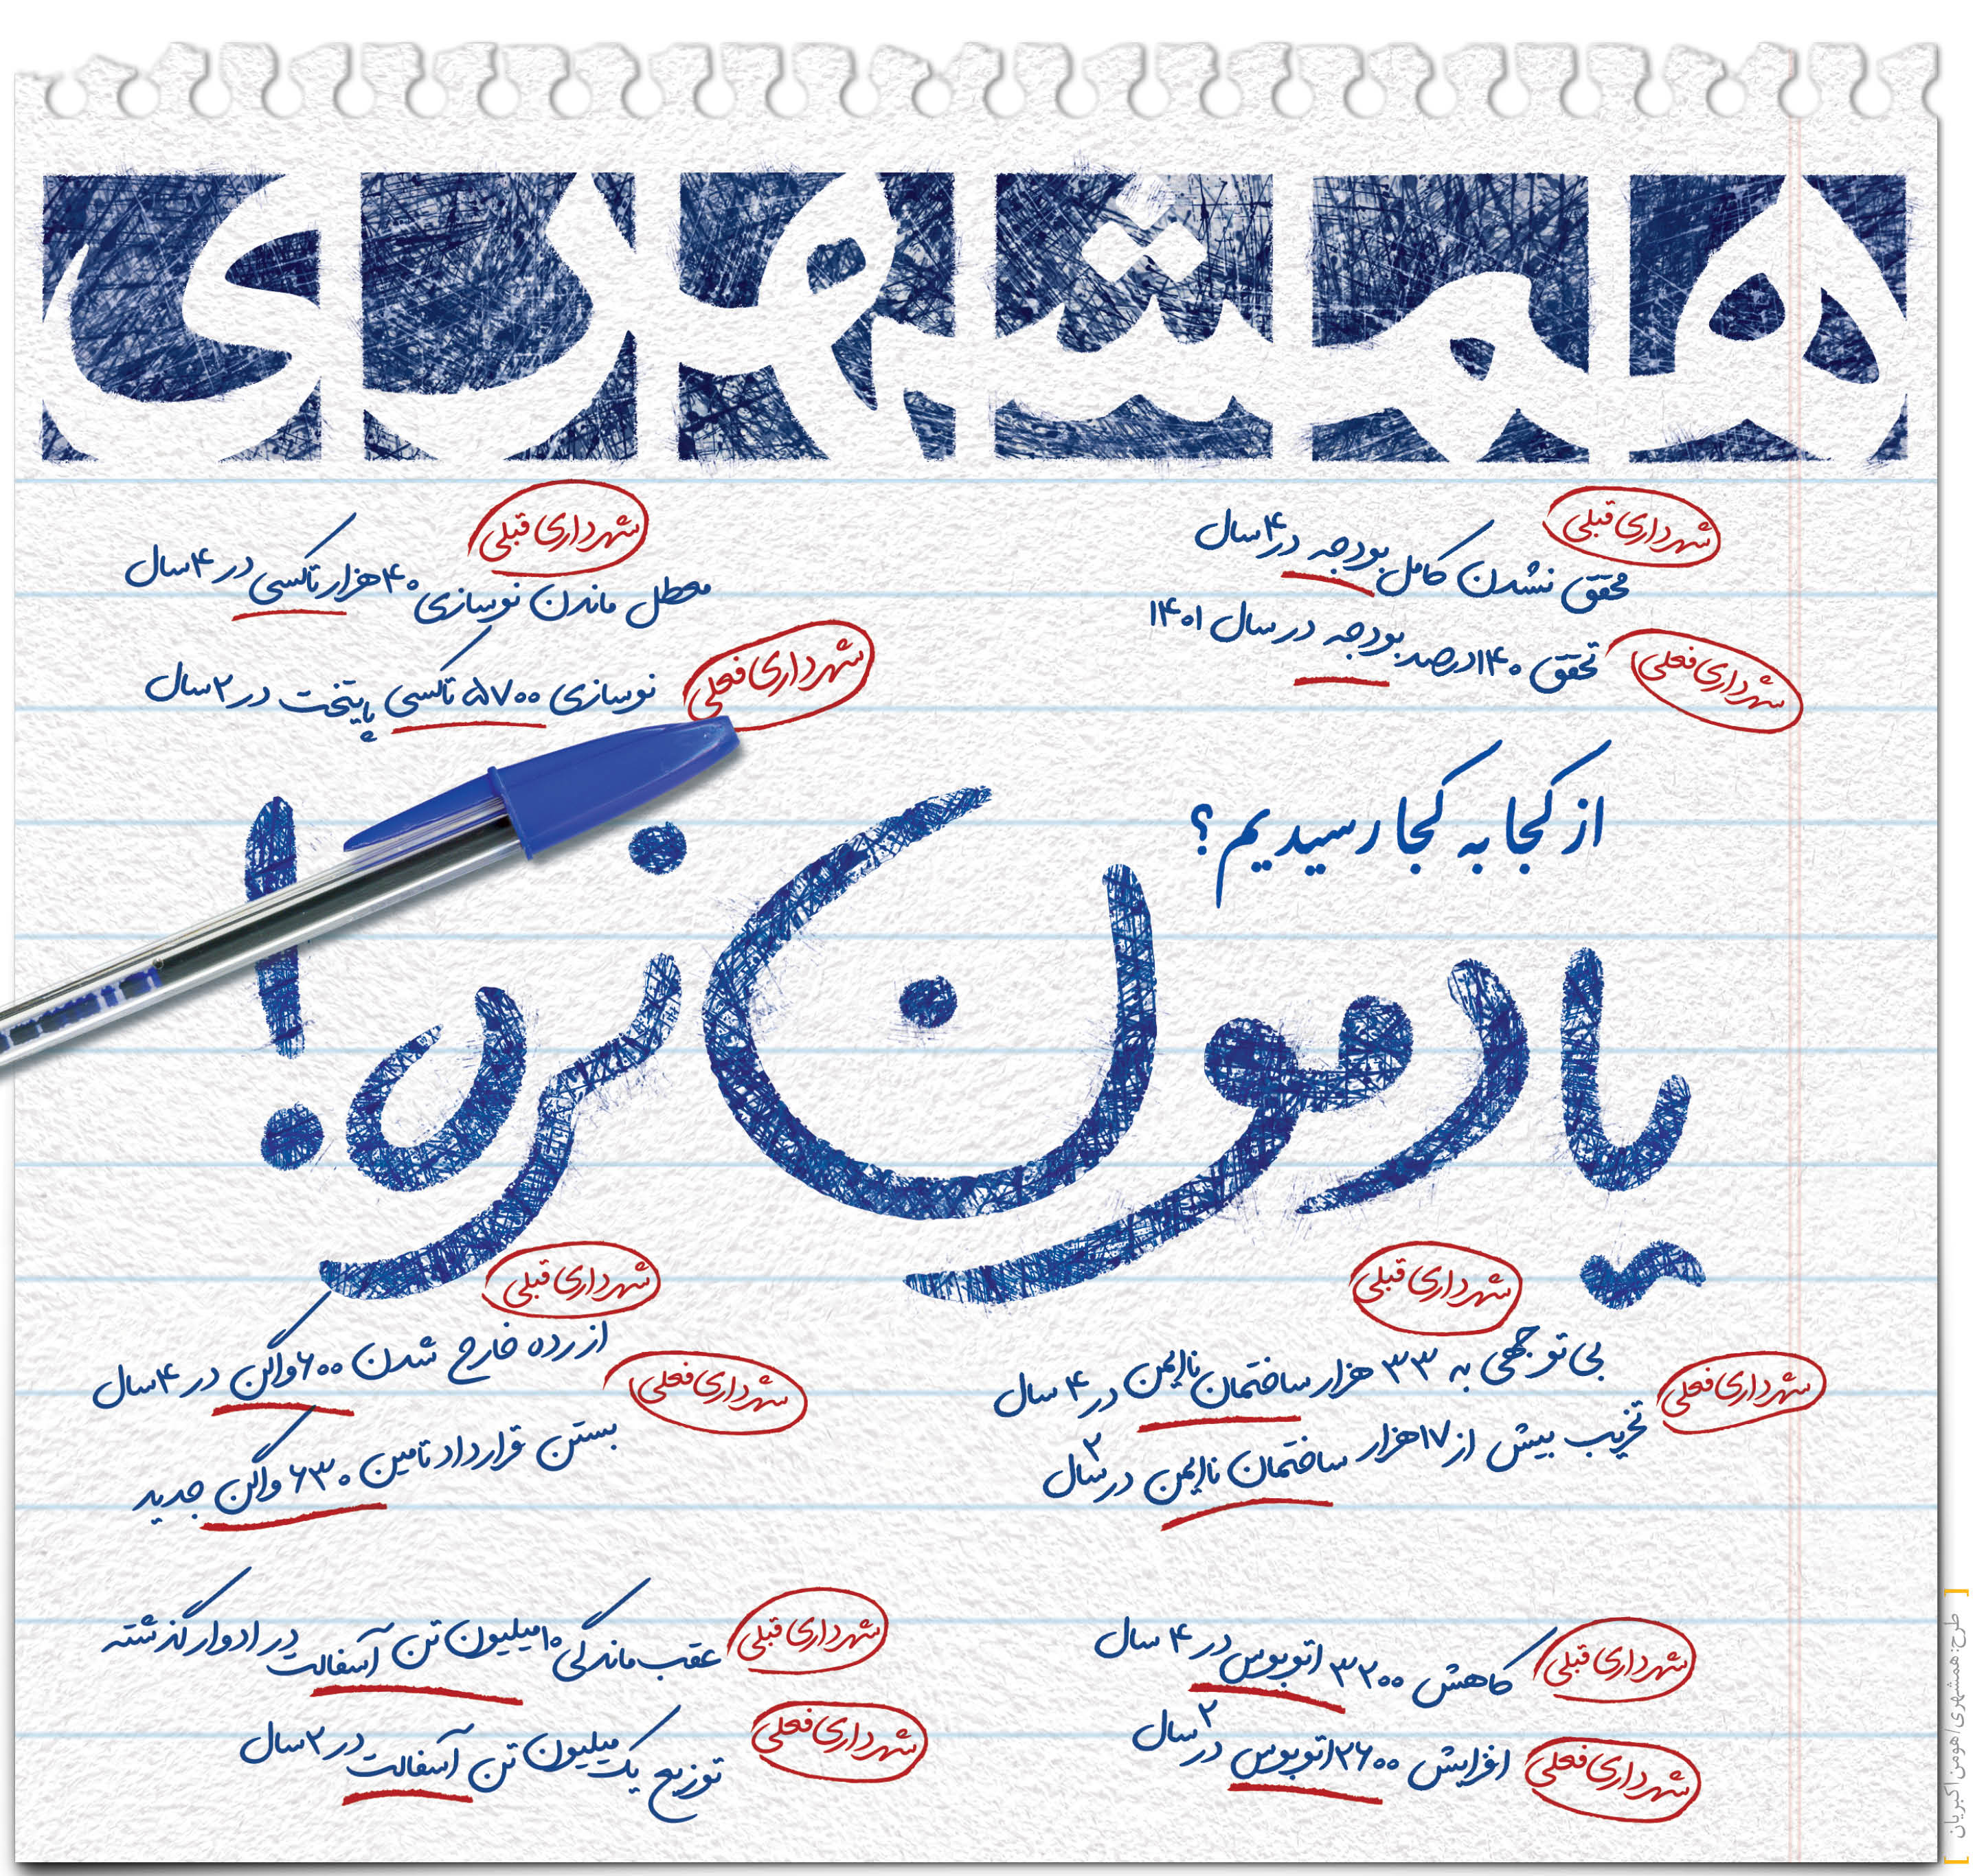 همشهری
شهرداری قبلی
محقق نشدن کامل بودجه در ۴ سال
شهرداری فعلی
تحقق ۱۴۰درصد بودجه در سال ۱۴۰۱
شهرداری قبلی
معطل ماندن نوسازی ۴۰هزار تاکسی در ۴سال
شهرداری فعلی
نوسازی ۵۷۰۰ تاکسی پایتخت در ۲سال
از کجا به کجا رسیدیم؟
یادمون نره!
شهرداری قبلی
بی‌توجهی به ۳۳ هزار ساختمان ناایمن در ۴ سال
شهرداری فعلی
تخریب بیش از ۱۷هزار ساختمان ناایمن در ۲ سال
شهرداری قبلی
از رده خارج شدن ۶۰۰واگن در ۴سال
شهرداری فعلی
بستن قرارداد تامین ۶۳۰ واگن جدید
شهرداری قبلی
کاهش ۳۲۰۰ اتوبوس در ۴ سال
شهرداری فعلی
افزایش ۲۶۰۰ اتوبوس در ۲ سال
شهرداری قبلی
عقب‌ماندگی ۱۰میلیون تن آسفالت در ادوار گذشته
شهرداری فعلی
توزیع یک میلیون تن آسفالت در ۲سال
طرح: همشهری / هومن اکبریان